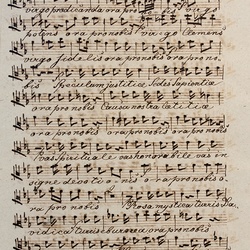 virgo prædicanda ora pro nobis virgo
potens ora pro nobis virgo Clemens
virgo fidelis ora pro nobis ora pro no
bis Speculum justitiæ Sedes Sapientiæ
ora pro nobis Causa nostræ lætitiæ
ora pro nobis ora pro nobis ora pro nobis
vas Spirituale vas honorabile vas in
signe devotionis ora pro nobis ora pro nobis
ora pro nobis Rosa mystica turris Da
vidica turris eburnea ora pro nobis